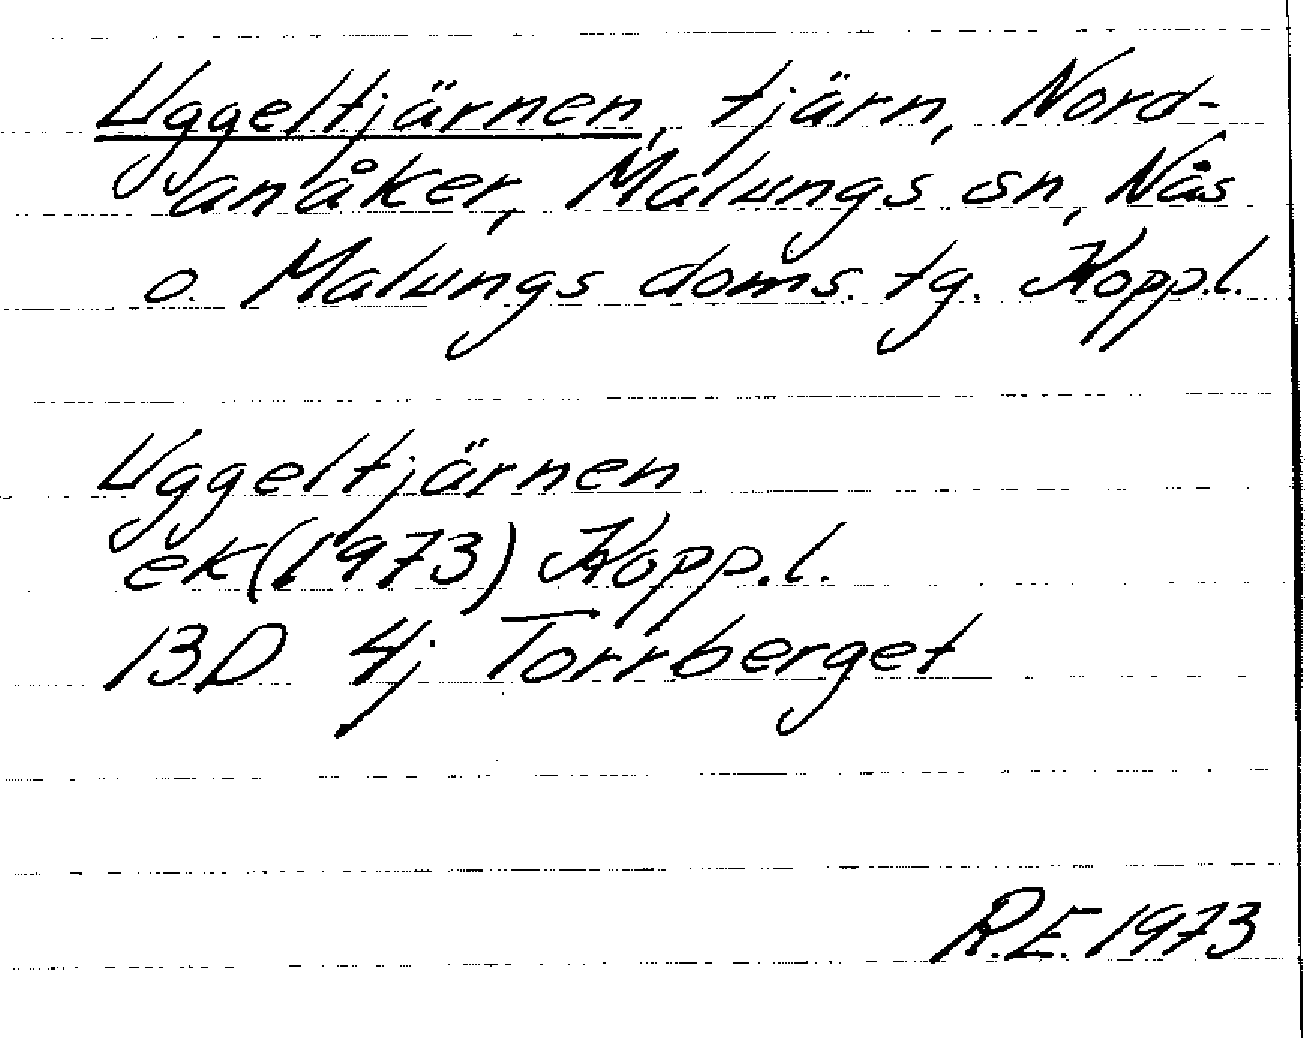 Uggeltjärnen, tjärn, Nord-
anåker, Malungs sn, Nås
o. Malungs doms. tg. Kopp.l.
Uggeltjärnen
ek(1973) Kopp.l.
13D 4j Torrberget
R.E. 1973